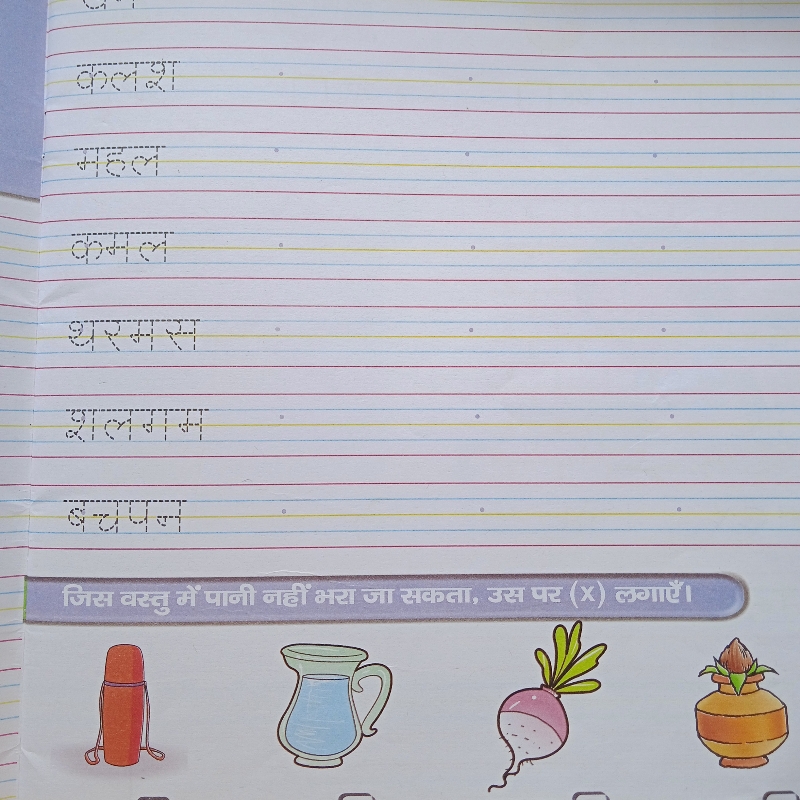 कलश
महल
कमल
थरमस
शलगम
बचपन
जिस वस्तु में पानी नहीं भरा जा सकता, उस पर (x) लगाएँ।